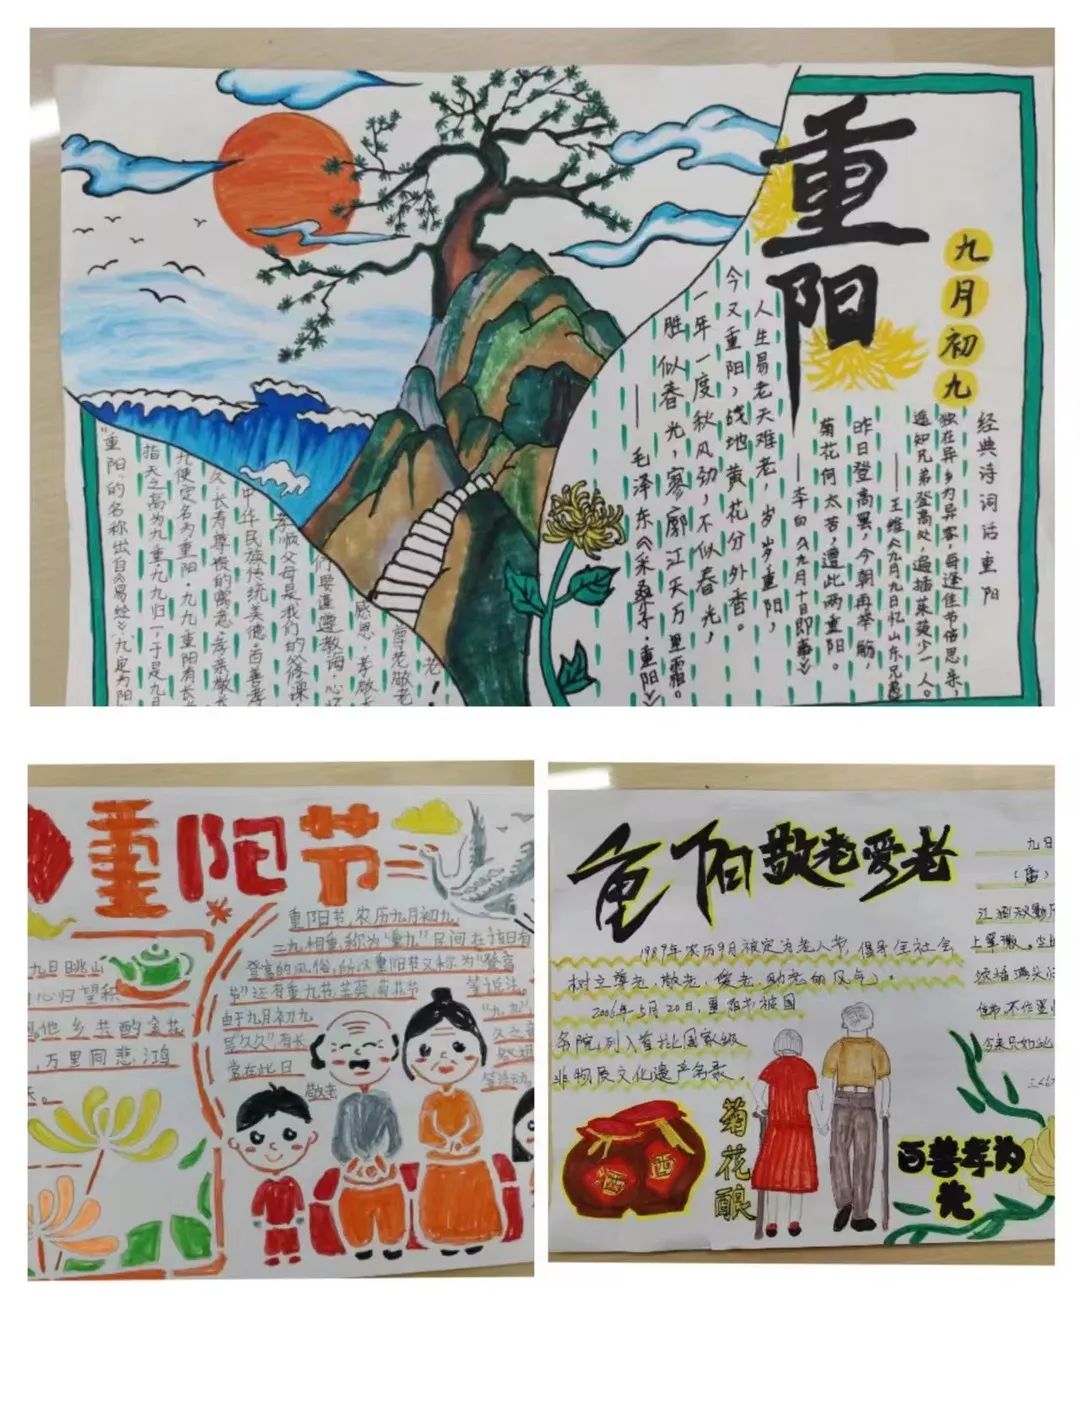 重阳
九月初九
经典诗词话重阳
独在异乡为异客,每逢佳节倍思亲,
遥知兄弟登高处,遍插茱萸少一人。
——王维《九月九日忆山东兄弟》
昨日登高罢,今朝再举觞
菊花何太苦,遭此两重阳。
——李白《九月十日即事》
人生易老天难老,岁岁重阳,
今又重阳,战地黄花分外香。
一年一度秋风劲,不似春光,
胜似春光,寥廓江天万里霜。
——毛泽东《采桑子·重阳》
"重阳"的名称出自《易经》,九定为阳
指天之高为九重,九九归一,于是九月
九便定名为重阳,九九重阳有长
久,长寿尊的寓意,孝亲敬
中华民族传统美德,百善孝
孝顺父母是我们的必修课
们要谨遵教诲,心怀
感恩,孝敬
尊老敬老
老!
重阳节
重阳节,农历九月初九,
二九相重,称为"重九"民间在该日有
登高的风俗,所以重阳节又称为"登高
节"还有重九节茱萸,菊花节
等说法。
由于九月初九
"九九"
是"久久"有长
久之意
常在此日
敬老
等活动。
九日眺山
心归望积
他乡共酌金花
,万里同悲鸿
重阳敬老爱老
1989年农历9月被定为老人节,倡导全社会
树立尊老,敬老,爱老,助老的风气;
2006年5月20日,重阳节被国
务院列入首批国家级
非物质文化遗产名录。
酒
酒
菊花酿
百善孝为先
九日
江涵秋影
今来只如此